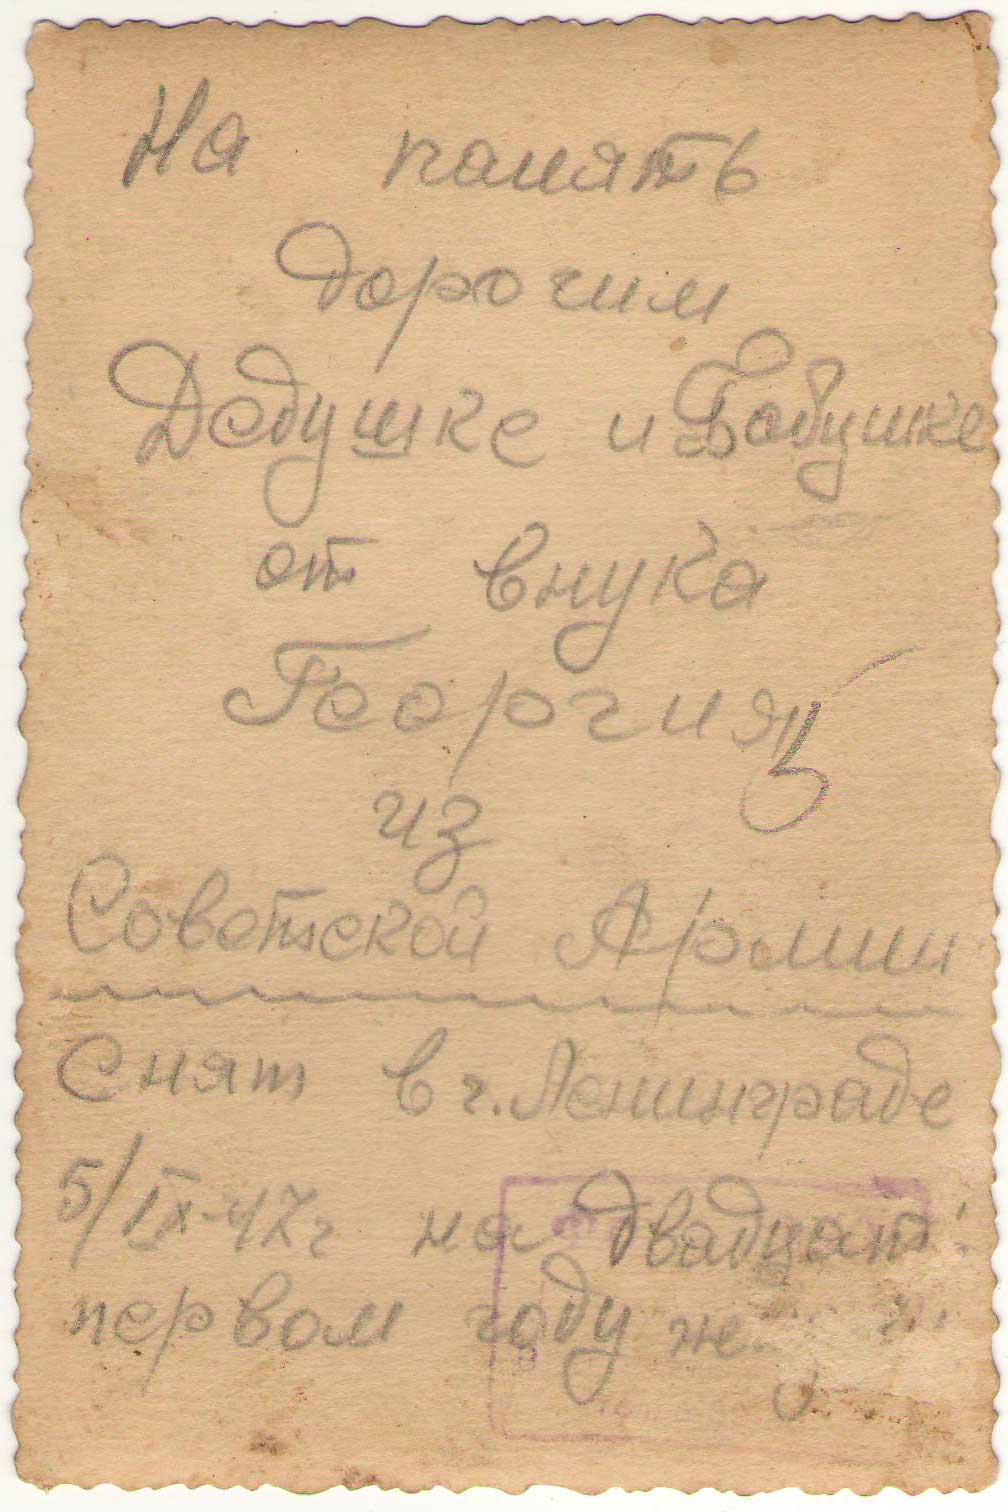 На память
дорогим
Дедушке и Бабушке
от внука
Георгия
из
Советской Армии
Снят в г. Ленинграде
5/IX-47г на двадцать
первом году